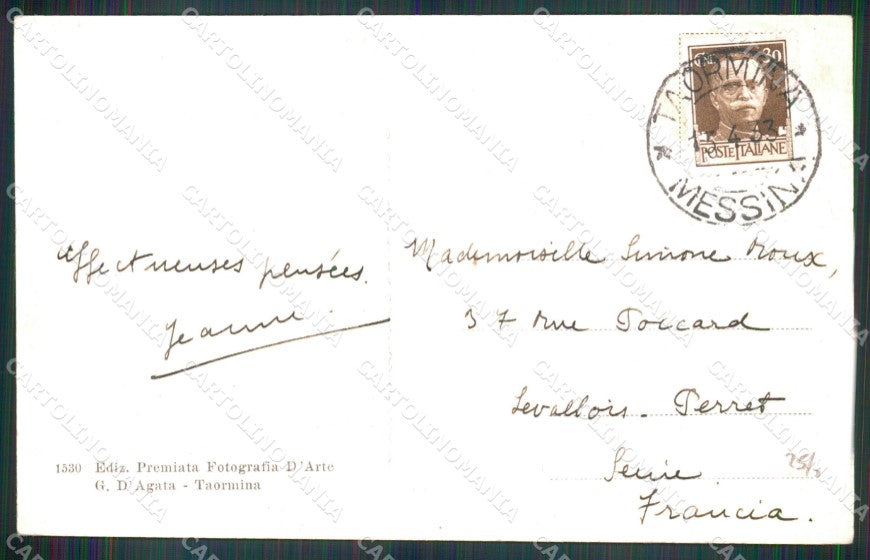 30
POSTE ITALIANE
TAORMINA
15.4.33
MESSINA
affectueuses pensées.
Jeanne.
Mademoiselle Simone Roux,
37 Rue Poccard
Levallois-Perret
Seine
Francia.
1530 Ediz. Premiata Fotografia D'Arte
G. D'Agata - Taormina
CARTOLINOMANIA